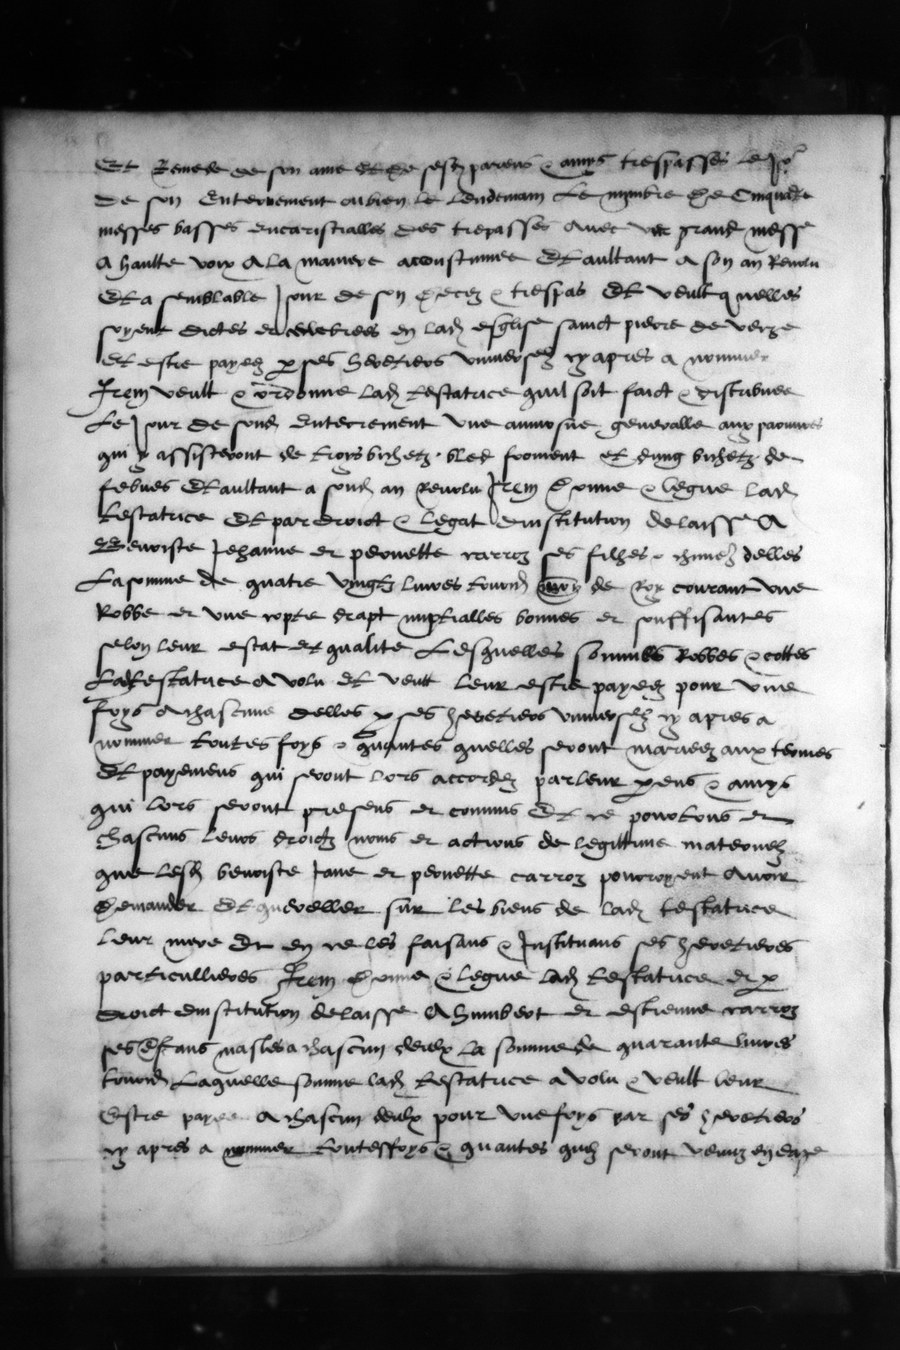 Et Remede de son ame et de sesd parens & amys trespasses le Jor
de son Enterrement oubien le lendemain Le nombre de Cinquāte
messes basses eucaristialles des trepasses Avec une grand messe
A haulte voix A la maniere acconstumee Et aultant a son an Revolu
Et a semblable Jour de son deces & trespas Et veult quelles
soyent dictes et celebrees en lad esglise sainct pierre de verze
et estre payez p ses heretiers universelz cy apres a nommer
Item veult & ordonne lad testatrice quil soit faict & distribuee
Le Jour de sond Enterrement Une aulmosne generalle aux paouvres
qui y assisteront de troys bichetz bled froment et dung bichetz de
febves Et aultant a sond an Revolu Item donne & legue lad
testatrice Et par droict & legat dinstitution delaisse A
Benoiste Jehanne et pernette carroz ses filhes chune delles
La somme de quatre vingtz livres tourn de Roy courant une
Robbe et une cotte drapt nuptialles bonnes et souffisantes
selon leur estat et qualite Lesquelles sommes Robbes & cottes
Lad testatrice a volu et veult leur estre payez pour une
foys A chascune delles p ses heretiers universelz cy apres a
nommer toutesfoys & quantes quelles seront mariez aux termes
Et payemens qui seront lors accordez par leur pens & amys
qui lors seront presens et commis Et ce pour tous et
chascuns leurs droictz noms et actions de legittime maternelz
que lesd benoiste Jane et pernette carroz pourroyent Avoir
demander Et quereller sur les biens de lad testatrice
leur mere Et en ce les faisans & Instituans ses heretieres
particullieres Item donne & legue lad testatrice et p
droict dinstitution delaisse A humbert et estienne carroz
ses Enfans masles a chascun deulx La somme de quarante livres
tourn Laquelle somme lad testatrice a volu & veult leur
Estre payee A chascun deulx pour une foys par ses heretiers
cy apres a nommer toutesffoys & quantes quilz seront venuz en eage